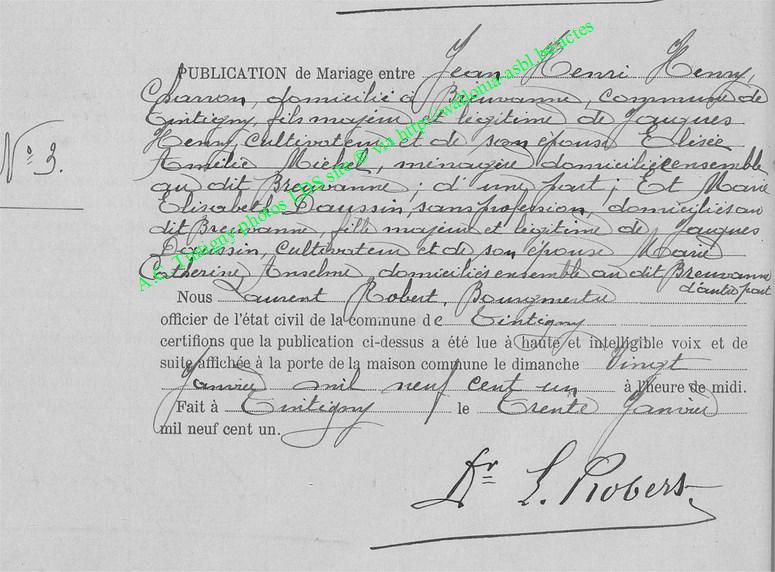 PUBLICATION de Mariage entre Jean Henri Henry,
Charron, domicilié à Breuvanne, commune de
Tintigny, fils majeur et légitime de Jacques
N° 3.
Henry, cultivateur et de son épouse Elisée
Amélie Michel, ménagère domiciliés ensemble
au dit Breuvanne; d'une part; Et Marie
Elisabeth Daussin, sans profession, domiciliée au
dit Breuvanne, fille majeure et légitime de Jacques
Daussin, cultivateur et de son épouse Marie
Catherine Anselme domiciliés ensemble au dit Breuvanne
d'autre part
Nous Laurent Robert, Bourgmestre
officier de l'état civil de la commune de Tintigny
certifions que la publication ci-dessus a été lue à haute et intelligible voix et de
suite affichée à la porte de la maison commune le dimanche Vingt
Janvier mil neuf cent un à l'heure de midi.
Fait à Tintigny le Trente Janvier
mil neuf cent un.
Dr L. Robert
A.C. Tintigny photos LDS site © via http://wallonia-asbl.be/actes